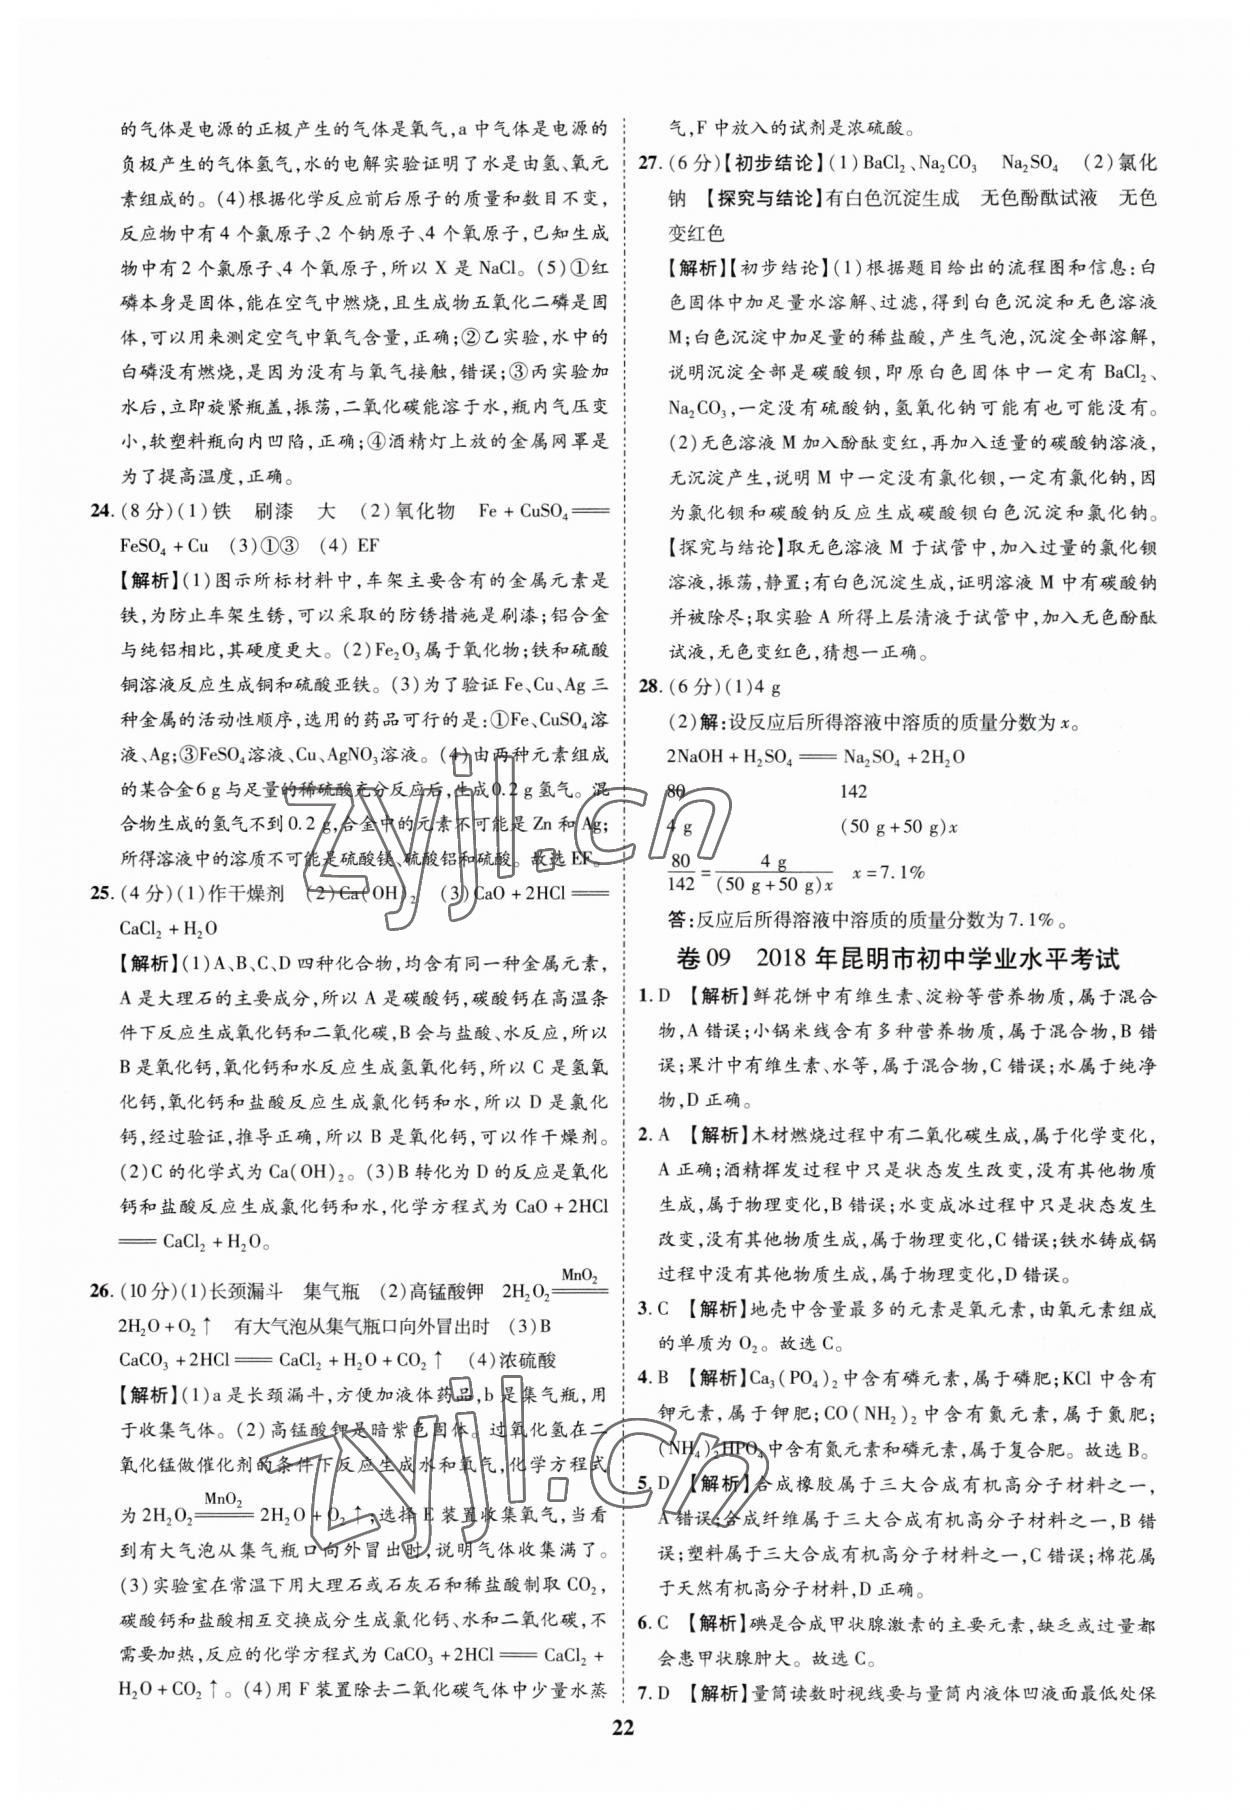 的气体是电源的正极产生的气体是氧气,a 中气体是电源的
负极产生的气体氢气,水的电解实验证明了水是由氢、氧元
素组成的。(4)根据化学反应前后原子的质量和数目不变,
反应物中有 4 个氯原子、2 个钠原子、4 个氧原子,已知生成
物中有 2 个氯原子、4 个氧原子,所以 X 是 NaCl。(5)①红
磷本身是固体,能在空气中燃烧,且生成物五氧化二磷是固
体,可以用来测定空气中氧气含量,正确;②乙实验,水中的
白磷没有燃烧,是因为没有与氧气接触,错误;③丙实验加
水后,立即旋紧瓶盖,振荡,二氧化碳能溶于水,瓶内气压变
小,软塑料瓶向内凹陷,正确;④酒精灯上放的金属网罩是
为了提高温度,正确。
24. (8 分)(1)铁 刷漆 大 (2)氧化物 Fe + CuSO₄ ══
FeSO₄ + Cu (3)①③ (4) EF
【解析】(1)图示所标材料中,车架主要含有的金属元素是
铁,为防止车架生锈,可以采取的防锈措施是刷漆;铝合金
与纯铝相比,其硬度更大。(2)Fe₂O₃属于氧化物;铁和硫酸
铜溶液反应生成铜和硫酸亚铁。(3)为了验证 Fe、Cu、Ag 三
种金属的活动性顺序,选用的药品可行的是:①Fe、CuSO₄溶
液、Ag;③FeSO₄溶液、Cu、AgNO₃溶液。(4)由两种元素组成
的某合金6 g 与足量的稀硫酸充分反应后,生成0.2 g氢气。混
合物生成的氢气不到0.2 g,合金中的元素不可能是 Zn 和 Ag;
所得溶液中的溶质不可能是硫酸镁、硫酸铝和硫酸。故选 EF。
25. (4 分)(1)作干燥剂 (2)Ca(OH)₂ (3)CaO + 2HCl ══
CaCl₂ + H₂O
【解析】(1)A、B、C、D 四种化合物,均含同种金属元素,
A 是大理石的主要成分,所以 A 是碳酸钙,碳酸钙在高温条
件下反应生成氧化钙和二氧化碳,B 会与盐酸、水反应,所以
B 是氧化钙,氧化钙和水反应生成氢氧化钙,所以 C 是氢氧
化钙,氧化钙和盐酸反应生成氯化钙和水,所以 D 是氯化
钙,经过验证,推导正确,所以 B 是氧化钙,可以作干燥剂。
(2)C 的化学式为 Ca(OH)₂。(3)B 转化为 D 的反应是氧化
钙和盐酸反应生成氯化钙和水,化学方程式为 CaO + 2HCl
══ CaCl₂ + H₂O。
MnO₂
26. (10 分)(1)长颈漏斗 集气瓶 (2)高锰酸钾 2H₂O₂ ══
2H₂O + O₂↑ 有大气泡从集气瓶口向外冒出时 (3)B
CaCO₃ + 2HCl ══ CaCl₂ + H₂O + CO₂↑ (4)浓硫酸
【解析】(1)a 是长颈漏斗,方便加液体药品,b 是集气瓶,用
于收集气体。(2)高锰酸钾是暗紫色固体。过氧化氢在二
氧化锰做催化剂的条件下反应生成水和氧气,化学方程式
MnO₂
为 2H₂O₂ ══ 2H₂O + O₂↑;选择 E 装置收集氧气,当看
到有大气泡从集气瓶口向外冒出时,说明气体收集满了。
(3)实验室在常温下用大理石或石灰石和稀盐酸制取 CO₂,
碳酸钙和盐酸相互交换成分生成氯化钙、水和二氧化碳,不
需要加热,反应的化学方程式为 CaCO₃ + 2HCl ══ CaCl₂ +
H₂O + CO₂↑。(4)用 F 装置除去二氧化碳气体中少量水蒸
气,F 中放入的试剂是浓硫酸。
27. (6 分)【初步结论】(1) BaCl₂、Na₂CO₃ Na₂SO₄ (2)氯化
钠 【探究与结论】有白色沉淀生成 无色酚酞试液 无色
变红色
【解析】【初步结论】(1)根据题目给出的流程图和信息:白
色固体中加足量水溶解、过滤,得到白色沉淀和无色溶液
M;白色沉淀中加足量的稀盐酸,产生气泡,沉淀全部溶解,
说明沉淀全部是碳酸钡,即原白色固体中一定有 BaCl₂、
Na₂CO₃,一定没有硫酸钠,氢氧化钠可能有也可能没有。
(2)无色溶液 M 加入酚酞变红,再加入适量的碳酸钠溶液,
无沉淀产生,说明 M 中一定没有氯化钡,一定有氯化钠,因
为氯化钡和碳酸钠反应生成碳酸钡白色沉淀和氯化钠。
【探究与结论】取无色溶液 M 于试管中,加入过量的氯化钡
溶液,振荡,静置;有白色沉淀生成,证明溶液 M 中有碳酸钠
并被除尽;取实验 A 所得上层清液于试管中,加入无色酚酞
试液,无色变红色,猜想一正确。
28. (6 分)(1)4 g
(2)解:设反应后所得溶液中溶质的质量分数为 x。
2NaOH + H₂SO₄ ══ Na₂SO₄ + 2H₂O
80 142
4 g (50 g+50 g)x
80/142 = 4 g/(50 g+50 g)x x = 7.1%
答:反应后所得溶液中溶质的质量分数为 7.1%。
卷 09 2018 年昆明市初中学业水平考试
1. D 【解析】鲜花饼中有维生素、淀粉等营养物质,属于混合
物,A 错误;小锅米线含有多种营养物质,属于混合物,B 错
误;果汁中有维生素、水等,属于混合物,C 错误;水属于纯净
物,D 正确。
2. A 【解析】木材燃烧过程中有二氧化碳生成,属于化学变化,
A 正确;酒精挥发过程中只是状态发生改变,没有其他物质
生成,属于物理变化,B 错误;水变成冰过程中只是状态发生
改变,没有其他物质生成,属于物理变化,C 错误;铁水铸成锅
过程中没有其他物质生成,属于物理变化,D 错误。
3. C 【解析】地壳中含量最多的元素是氧元素,由氧元素组成
的单质为 O₂。故选 C。
4. B 【解析】Ca₃(PO₄)₂中含有磷元素,属于磷肥;KCl 中含有
钾元素,属于钾肥;CO(NH₂)₂中含有氮元素,属于氮肥;
(NH₄)₂HPO₄中含有氮元素和磷元素,属于复合肥。故选 B。
5. D 【解析】合成橡胶属于三大合成有机高分子材料之一,
A 错误;合成纤维属于三大合成有机高分子材料之一,B 错
误;塑料属于三大合成有机高分子材料之一,C 错误;棉花属
于天然有机高分子材料,D 正确。
6. C 【解析】碘是合成甲状腺激素的主要元素,缺乏或过量都
会患甲状腺肿大。故选 C。
7. D 【解析】量筒读数时视线要与量筒内液体凹液面最低处保
22
zyjl.cn
zyjl.cn